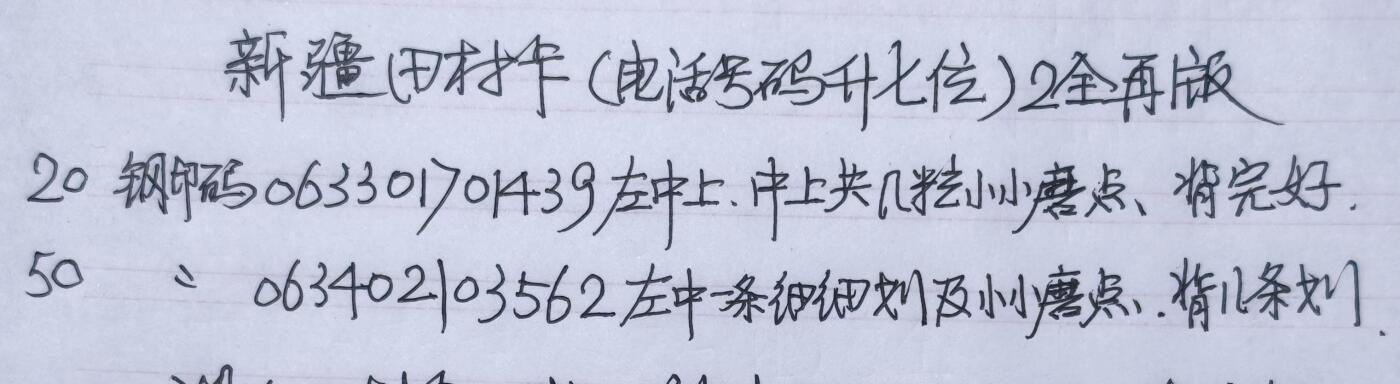 新疆田村卡(电话号码升七位)2全再版
20 钢印码063301701439左中上、中上共几粒小小磨点、背完好.
50 〃 063402103562左中一条细细划及小小磨点、.背几条划.